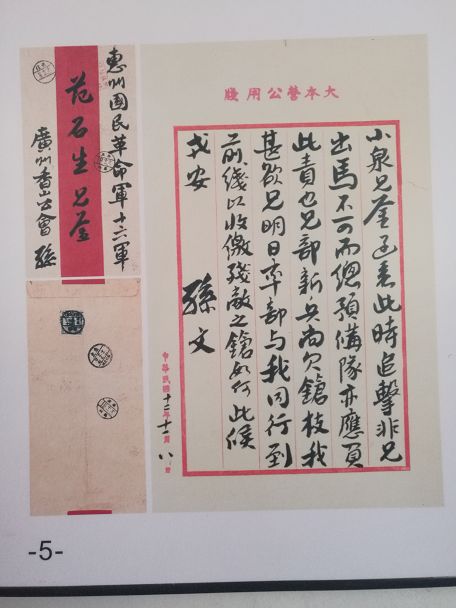 惠州國民革命軍十六軍
范石生兄鑒
廣州香山公會 孫
大本營公用牋
小泉兄鑒函悉此時追擊非兄
出馬不可而總預備隊亦應負
此責也兄部新兵尚欠鎗枝我
甚欲兄明日率部与我同行到
前綫以收繳殘敵之鎗如何此候
戎安
孫文
中華民國十二年十一月八日
-5-